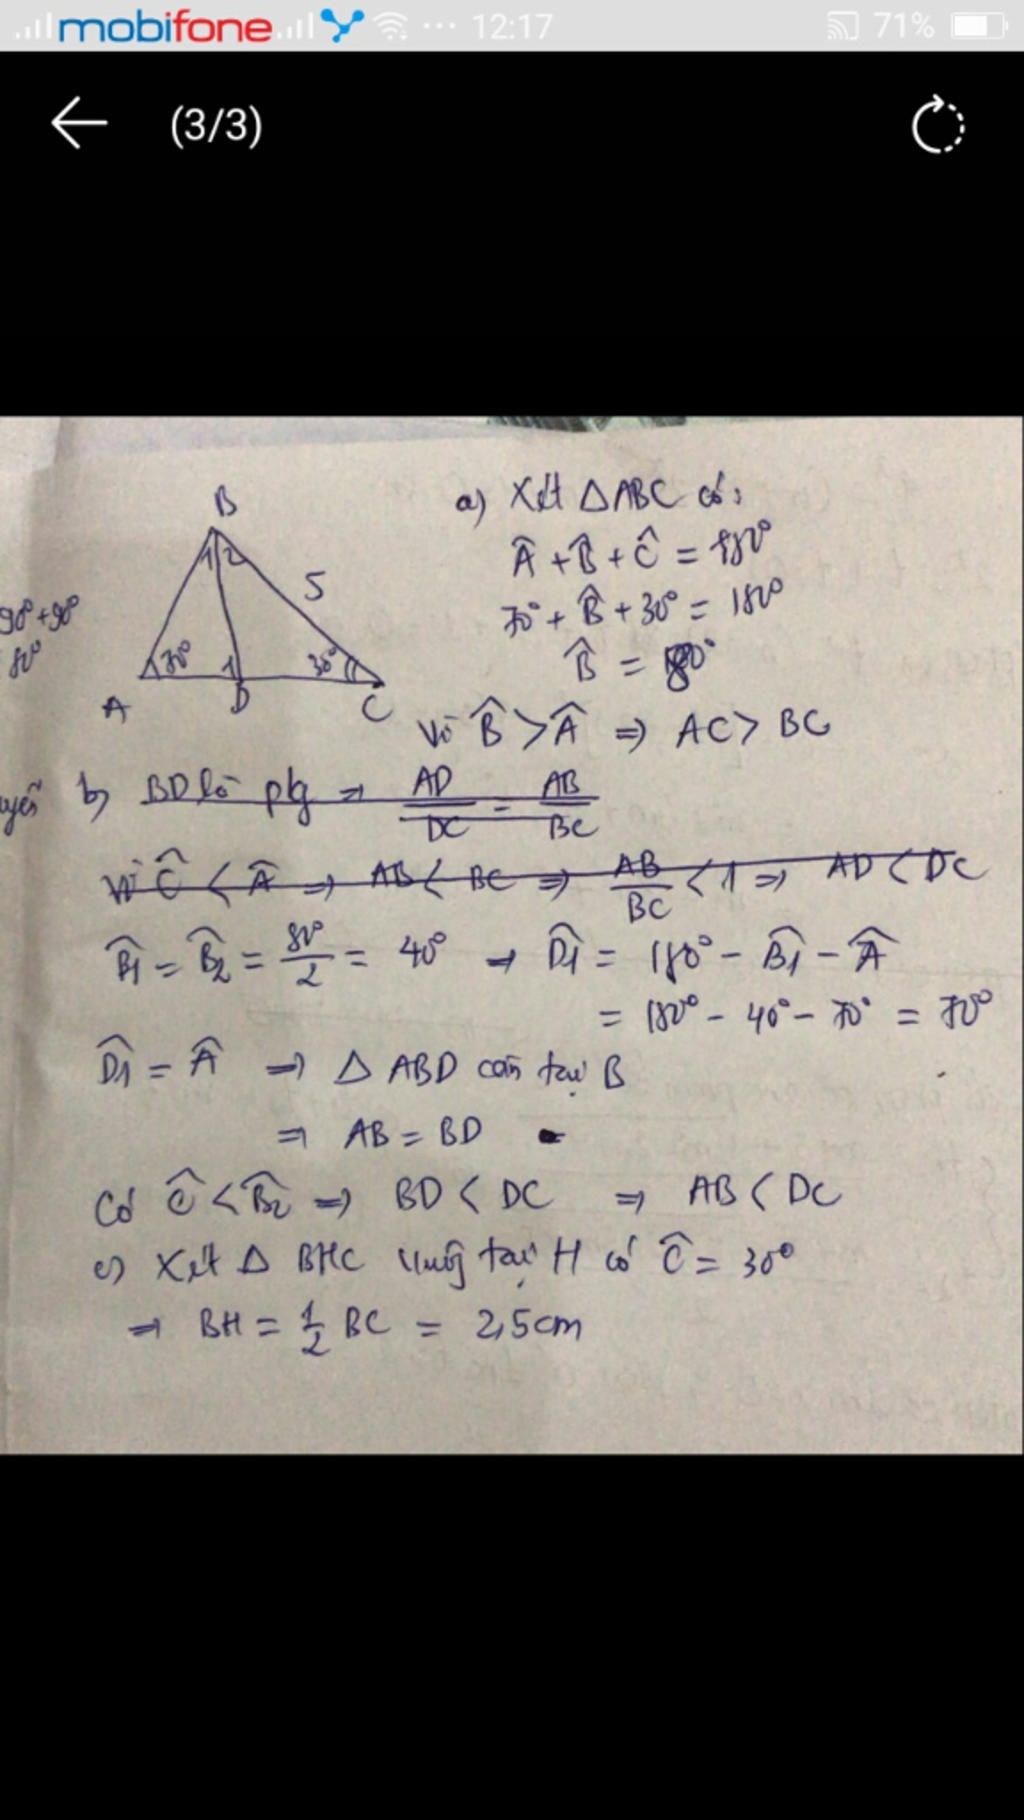 mobifone 12:17 71%
(3/3)
B
1 2
5
70° 1 30°
A D C
90° + 90°
80°
a) Xét △ABC có:
Â + B̂ + Ĉ = 180°
70° + B̂ + 30° = 180°
B̂ = 80°
Vì B̂ > Â ⇒ AC > BC
b) BD là pg ⇒ AD/DC = AB/BC
Vì Ĉ < Â ⇒ AB < BC ⇒ AB/BC < 1 ⇒ AD < DC
B̂1 = B̂2 = 80°/2 = 40° → D̂1 = 180° - B̂1 - Â
= 180° - 40° - 70° = 70°
D̂1 = Â ⇒ △ ABD cân tại B
⇒ AB = BD
Có Ĉ < B̂2 ⇒ BD < DC ⇒ AB < DC
c) Xét △ BHC vuông tại H có Ĉ = 30°
⇒ BH = 1/2 BC = 2,5cm